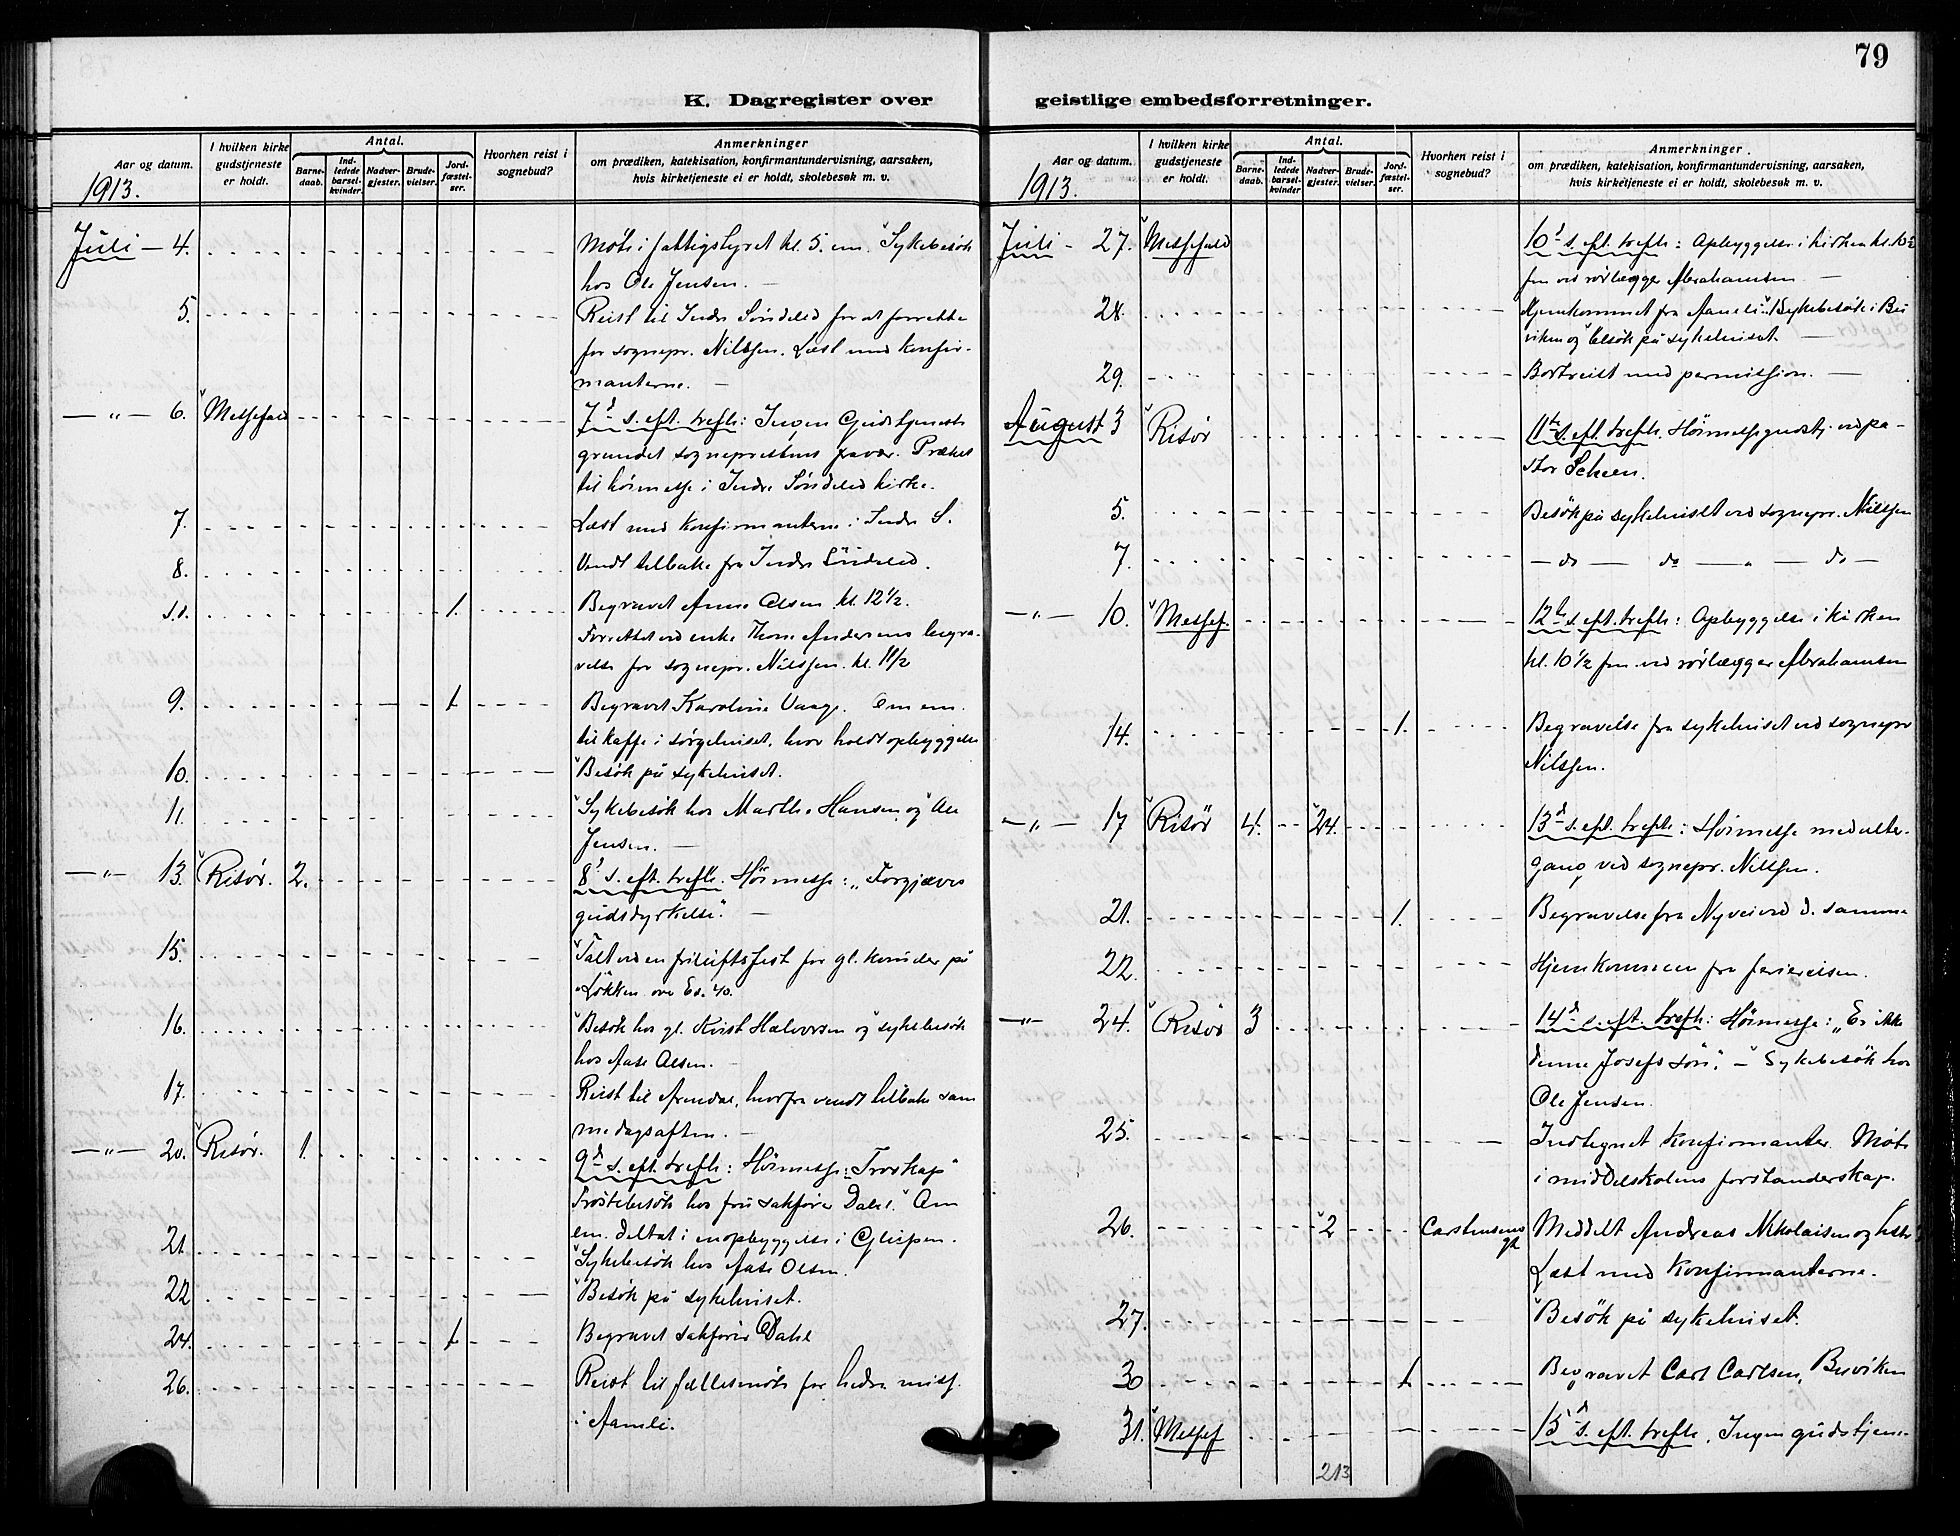 79
K. Dagregister over geistlige embedsforretninger.
Aar og datum.
I hvilken kirke gudstjeneste er holdt.
Antal.
Barnedaab.
Indledede barselkvinder.
Nadvergjester.
Brudevielser.
Jordfæstelser.
Hvorhen reist i sognebud?
Anmerkninger
om prædiken, katekisation, konfirmantundervisning, aarsaken,
hvis kirketjeneste ei er holdt, skolebesøk m. v.
1913.
Juli – 4. Møte i fattigstyret kl. 5. em. Sykebesøk
hos Ole Jensen. —
5. Reist til Indre Søndeled for at forrette
for sognepr. Nilssen. Læst med konfir-
manterne. —
— " — 6. Messefald 7d s. eft. trefh: Ingen Gudstjeneste
grundet sogneprestens fravær. Præket
til høimesse i Indre Søndeled kirke.
7. Læst med konfirmanterne i Indre S.
8. Vendt tilbake fra Indre Søndeled.
s.d. 1. Begravet Anne Olsen kl. 12½.
Forrettet ved enke Thone Andersens begra-
velse for sognepr. Nilssen. kl. 11½
9. 1 Begravet Karoline Vaage. Om em.
til kaffe i sørgehuset, hvor holdt opbyggelse
10. Besøk på sykehuset.
11. Sykebesøk hos Marthe Hansen og Ole
Jensen. —
— " — 13. Risør. 2. 8d s. eft. trefh. Høimesse: „Forgjæves
gudsdyrkelse". —
15. Talt ved en friluftsfest for gl. kvinder på
Løkken over Es. 40.
16. Besøk hos gl. Kvist Halvorsen og sykebesøk
hos Aase Olsen. —
17. Reist til Arendal, hvorfra vendt tilbake sam
me dags aften. —
— " — 20. Risør. 1. 9d s. eft. trefh: Høimesse: Troskap"
Trøstebesøk hos fru sakfører Dahl. Om
em. deltat i en opbyggelse i Glispen.
21. Sykebesøk hos Aase Olsen.
22 Besøk på sykehuset.
24. 1 Begravet sakfører Dahl
26. Reist til fællesmøte for hedn. miss.
i Aamli.
Aar og datum.
I hvilken kirke gudstjeneste er holdt.
Antal.
Barnedaab.
Indledede barselkvinder
Nadvergjester.
Brudevielser.
Jordfæstelser.
Hvorhen reist i sognebud?
Anmerkninger.
om prædiken, katekisation, konfirmantundervisning, aarsaken,
hvis kirketjeneste ei er holdt, skolebesøk m. v.
1913.
Juli – 27. Messefald 10d s. eft. trefh: Opbyggelse i kirken kl. 10½
fm ved rørlægger Abrahamsen —
28. Hjemkommet fra Aamli. Sykebesøk i Bu
viken og besøk på sykehuset —
29. Bortreist med permission. —
August 3 Risør 11te s. eft. trefh. Høimessegudstj. ved pa-
stor Scheen.
5. Besøk på sykehuset ved sognepr. Nilssen
7. — do — do — " — do —
— " — 10. Messef. 12te s. eft. trefh: Opbyggelse i kirken
kl. 10½ fm. ved rørlægger Abrahamsen
14. 1. Begravelse fra sykehuset ved sognepr
Nilssen.
— " — 17 Risør 4. 24. 13d s. eft. trefh: Høimesse med alter-
gang ved sognepr. Nilssen.
21. 1. Begravelse fra Nyvei ved d. samme
22. Hjemkommen fra feriereisen.
— " — 24. Risør 3 14d s. eft. trefh: Høimesse: „Er ikke
denne Josefs søn". – Sykebesøk hos
Ole Jensen.
25. Indtegnet Konfirmanter. Møte
i middelskolens forstanderskap.
26. 2 Carstensens gt Meddelt Andreas Nikolaisen og hustr
Læst med Konfirmanterne.
27. Besøk på sykehuset.
30 1 Begravet Carl Carlsen, Buviken
31. Messef 15d s. eft. trefh. Ingen gudstjene-
213